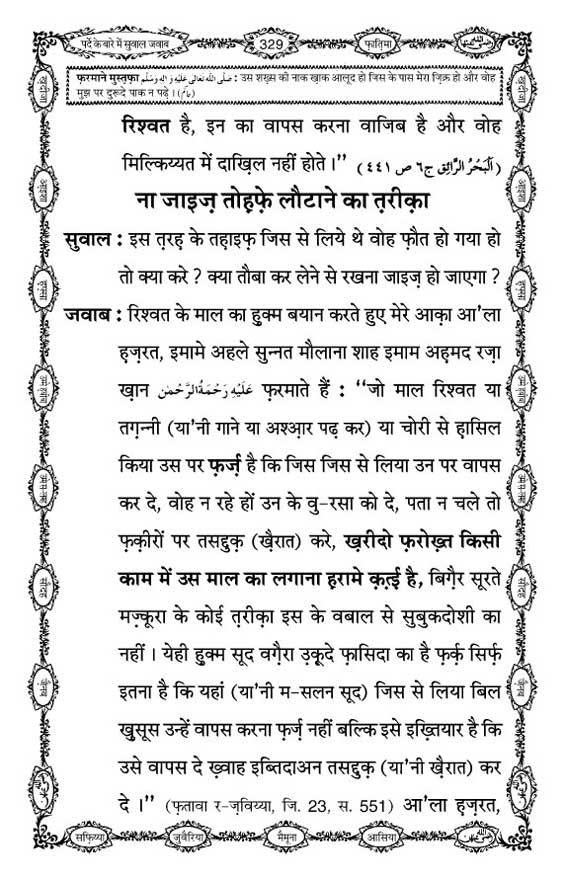 पर्दे के बारे में सुवाल जवाब
329
फ़ातिमा
फ़रमाने मुस्तफ़ा صَلَّى اللّٰهُ تَعَالٰى عَلَيْهِ وَاٰلِهٖ وَسَلَّم : उस शख़्स की नाक ख़ाक आलूद हो जिस के पास मेरा ज़िक्र हो और वोह
मुझ पर दुरूदे पाक न पढ़े । (حاكم)
रिश्वत है, इन का वापस करना वाजिब है और वोह
मिल्किय्यत में दाख़िल नहीं होते ।” (اَلْبَحْرُ الرَّائِق ج٦ ص ٤٤١)
ना जाइज़ तोह़फ़े लौटाने का त़रीक़ा
सुवाल : इस त़रह़ के तह़ाइफ़ जिस से लिये थे वोह फ़ौत हो गया हो
तो क्या करे ? क्या तौबा कर लेने से रखना जाइज़ हो जाएगा ?
जवाब : रिश्वत के माल का हुक्म बयान करते हुए मेरे आक़ा आ'ला
ह़ज़रत, इमामे अहले सुन्नत मौलाना शाह इमाम अह़मद रज़ा
ख़ान عَلَيْهِ رَحْمَةُ الرَّحْمٰن फ़रमाते हैं : “जो माल रिश्वत या
तग़न्नी (या'नी गाने या अश्आ़र पढ़ कर) या चोरी से ह़ासिल
किया उस पर फ़र्ज़ है कि जिस जिस से लिया उन पर वापस
कर दे, वोह न रहे हों उन के वु-रसा को दे, पता न चले तो
फ़क़ीरों पर तसद्दुक़ (ख़ैरात) करे, ख़रीदो फ़रोख़्त किसी
काम में उस माल का लगाना ह़रामे क़त़्ई है, बिग़ैर सूरते
मज़्कूरा के कोई त़रीक़ा इस के वबाल से सुबुकदोशी का
नहीं । येही हुक्म सूद वग़ैरा उ़क़ूदे फ़ासिदा का है फ़र्क़ सिर्फ़
इतना है कि यहां (या'नी म-सलन सूद) जिस से लिया बिल
ख़ुसूस उन्हें वापस करना फ़र्ज़ नहीं बल्कि इसे इख़्तियार है कि
उसे वापस दे ख़्वाह इब्तिदाअन तसद्दुक़ (या'नी ख़ैरात) कर
दे ।” (फ़तावा र-ज़विय्या, जि. 23, स. 551) आ'ला ह़ज़रत,
सफ़िय्या
जुवैरिया
मैमूना
आसिया